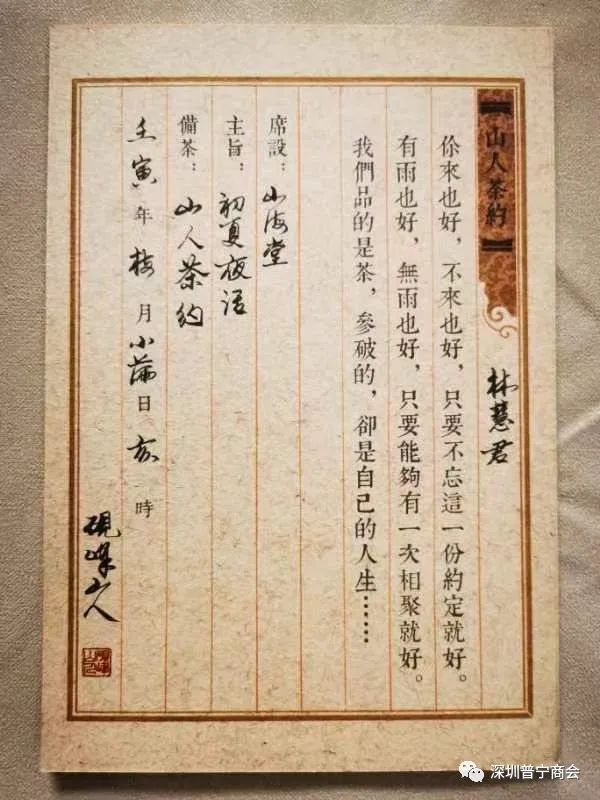 山人茶約
林慧君
你來也好，不來也好，只要不忘這一份約定就好。
有雨也好，無雨也好，只要能夠有一次相聚就好。
我們品的是茶，參破的，卻是自己的人生……
席設：山海堂
主旨：初夏夜話
備茶：山人茶約
壬寅年梅月小滿日亥時
硯峰山人
深圳普宁商会